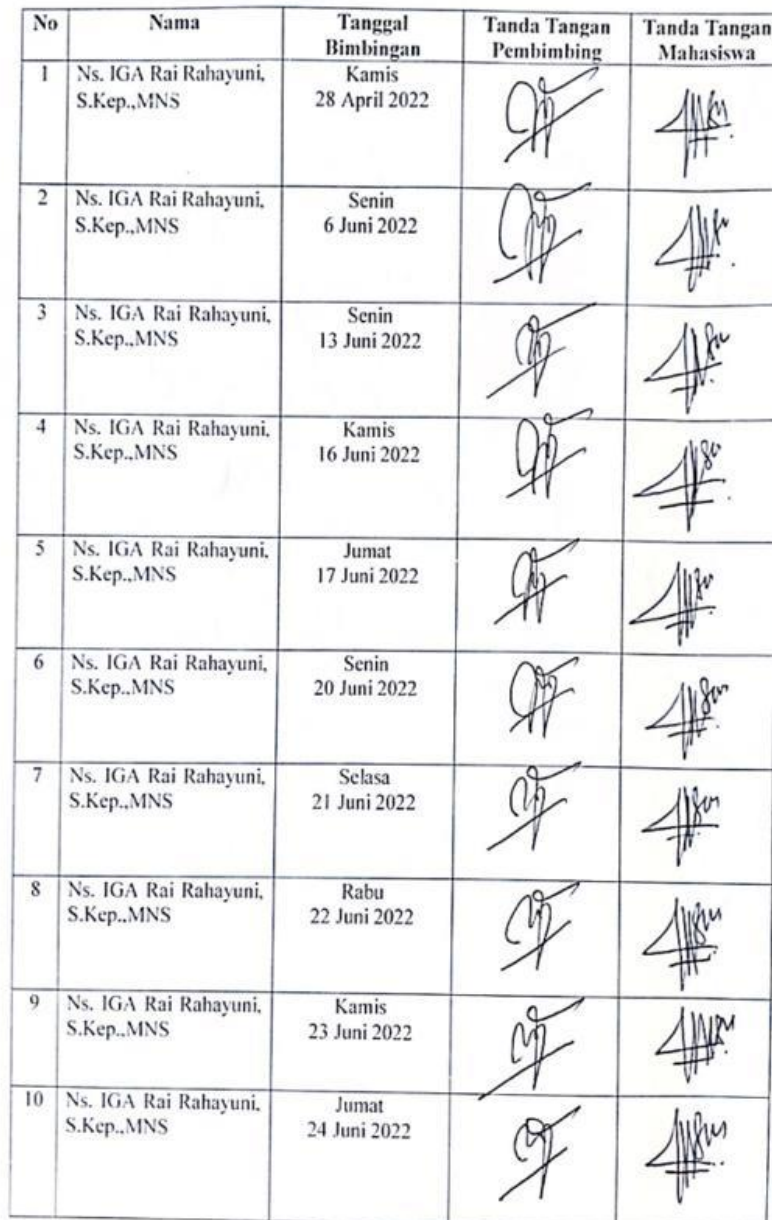 No Nama Tanggal Bimbingan Tanda Tangan Pembimbing Tanda Tangan Mahasiswa
1 Ns. IGA Rai Rahayuni, Kamis
S.Kep.,MNS 28 April 2022
2 Ns. IGA Rai Rahayuni, Senin
S.Kep.,MNS 6 Juni 2022
3 Ns. IGA Rai Rahayuni, Senin
S.Kep.,MNS 13 Juni 2022
4 Ns. IGA Rai Rahayuni, Kamis
S.Kep.,MNS 16 Juni 2022
5 Ns. IGA Rai Rahayuni, Jumat
S.Kep.,MNS 17 Juni 2022
6 Ns. IGA Rai Rahayuni, Senin
S.Kep.,MNS 20 Juni 2022
7 Ns. IGA Rai Rahayuni, Selasa
S.Kep.,MNS 21 Juni 2022
8 Ns. IGA Rai Rahayuni, Rabu
S.Kep.,MNS 22 Juni 2022
9 Ns. IGA Rai Rahayuni, Kamis
S.Kep.,MNS 23 Juni 2022
10 Ns. IGA Rai Rahayuni, Jumat
S.Kep.,MNS 24 Juni 2022